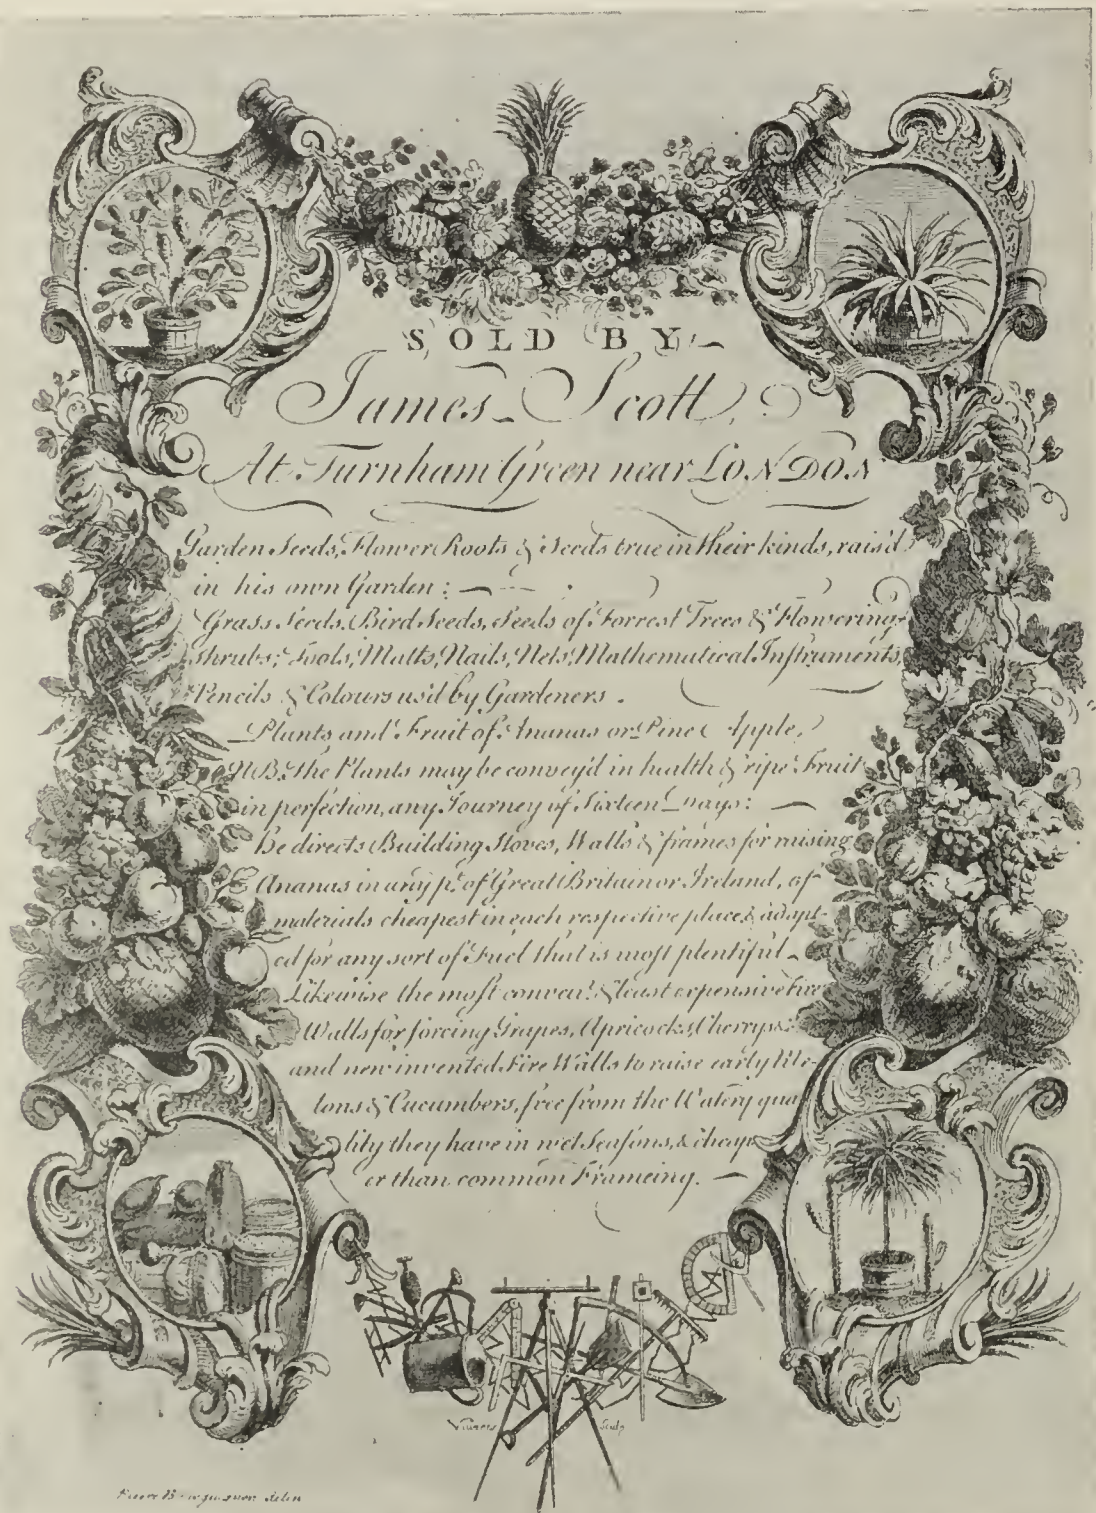 SOLD BY
James Scott,
At Turnham Green near LONDON
Garden Seeds, Flower Roots & Seeds true in their kinds, rais'd
in his own Garden:
Grass Seeds, Bird Seeds, Seeds of Forrest Trees & Flowering
Shrubs; Tools, Matts, Nails, Nets, Mathematical Instruments,
Pencils & Colours us'd by Gardeners.
Plants and Fruit of Ananas or Pine Apple,
N.B. The Plants may be convey'd in health & ripe Fruit
in perfection, any Journey of Sixteen Days:
He directs Building Stoves, Walls & frames for raising
Ananas in any pt. of Great Britain or Ireland, of
materials cheapest in each respective place & adapt-
ed for any sort of Fuel that is most plentiful
Likewise the most convent. & least expensive Fire
Walls for forcing Grapes, Apricocks, Cherrys &c.
and new invented Fire Walls to raise early Me-
lons & Cucumbers, free from the Watery qua
lity they have in wet Seasons, & cheap
er than common Frameing.
Vivares Sculp
delin